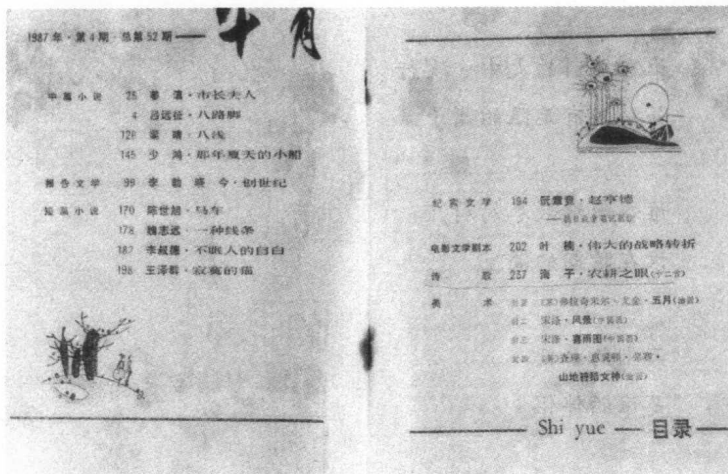 1987年·第4期·总第52期
中篇小说 25 · 市长夫人
4 吕远征 · 八路脚
128 梁晴 · 八线
145 少鸿 · 那年夏天的小船
报告文学 99 李 今 · 创世纪
短篇小说 170 陈世旭 · 马车
178 魏志远 · 一种线条
187 李叔德 · 不眠人的自白
198 王泽群 · 寂寞的猫
纪实文学 194 阮章竞 · 赵亨德
电影文学剧本 202 叶楠 · 伟大的战略转折
诗歌 237 海子 · 农耕之眼(十二首)
美术 · 五月(油画)
封二 宋涤 · 风景(中国画)
封三 宋涤 · 喜雨图(中国画)
山地狩猎女神(油画)
Shi yue 目录